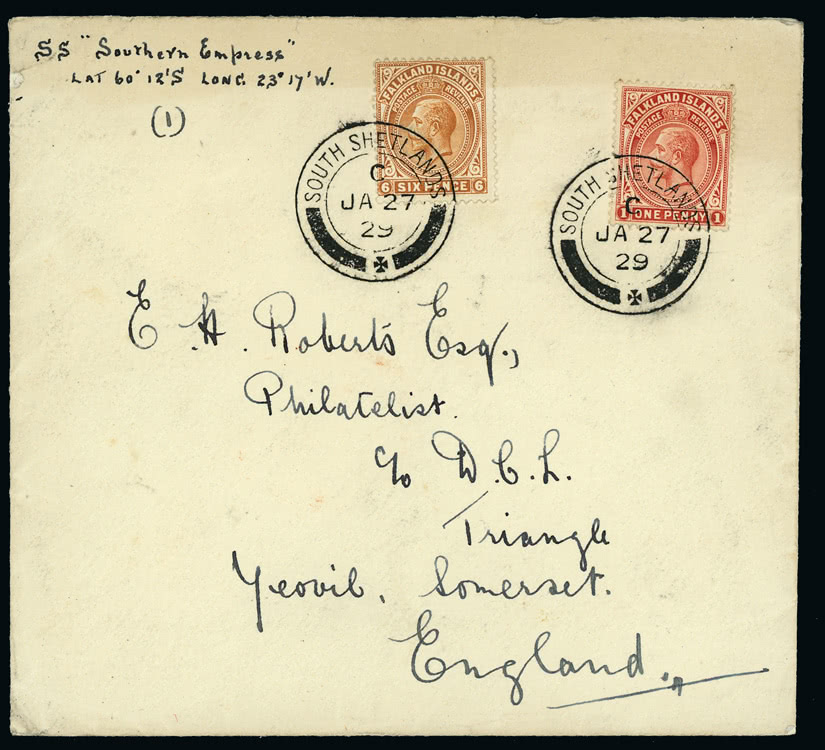 SS "Southern Empress"
LAT 60° 12'S LONG. 23° 17'W.
(1)
FALKLAND ISLANDS
POSTAGE REVENUE
6 SIX PENCE 6
FALKLAND ISLANDS
POSTAGE REVENUE
1 ONE PENNY 1
SOUTH SHETLANDS
C
JA 27
29
SOUTH SHETLANDS
C
JA 27
29
E. H. Roberts Esq.,
Philatelist.
c/o D.C.L.
Triangle
Yeovil, Somerset.
England.